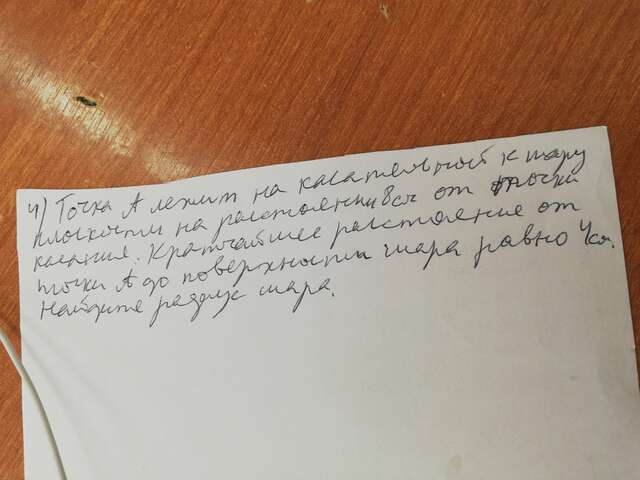 4) Точка А лежит на касательной к шару
плоскости на расстоянии 8см от точки
касания. Кратчайшее расстояние от
точки А до поверхности шара равно 4см.
Найдите радиус шара.